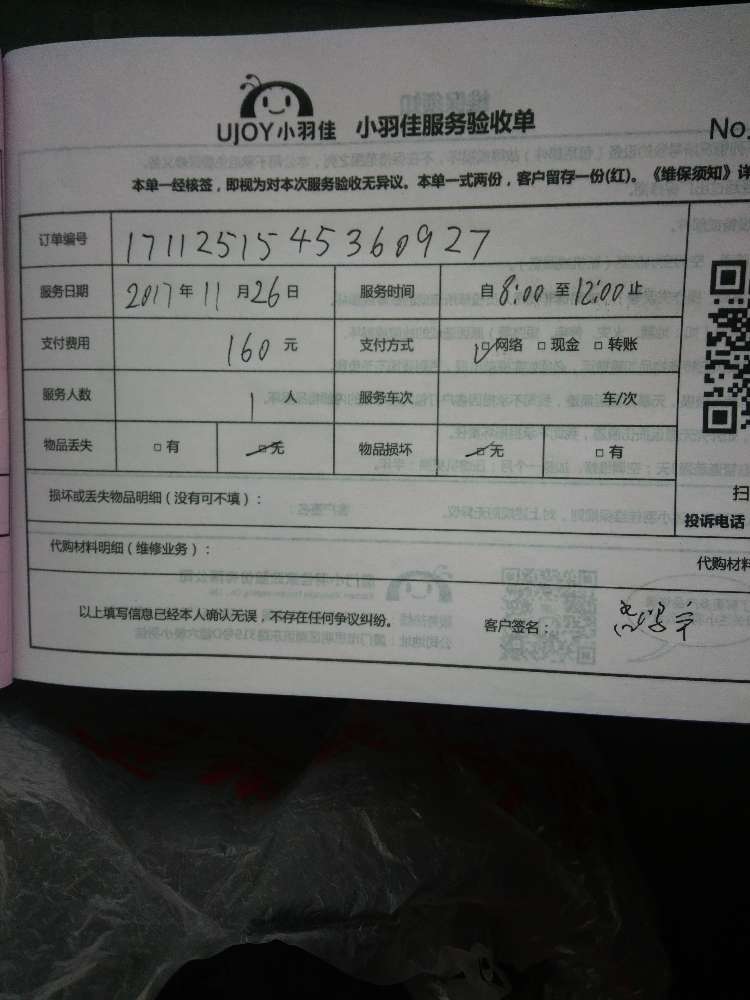 UJOY小羽佳 小羽佳服务验收单
No.
本单一经核签，即视为对本次服务验收无异议。本单一式两份，客户留存一份(红)。《维保须知》详
订单编号 171125154536​0927
服务日期 2017年11月26日 服务时间 自8:00至12:00止
支付费用 160元 支付方式 ☑网络 □现金 □转账
服务人数 1人 服务车次 车/次
物品丢失 □有 ☑无 物品损坏 ☑无 □有
损坏或丢失物品明细（没有可不填）：
扫
投诉电话
代购材料明细（维修业务）：
代购材料
以上填写信息已经本人确认无误，不存在任何争议纠纷。 客户签名：